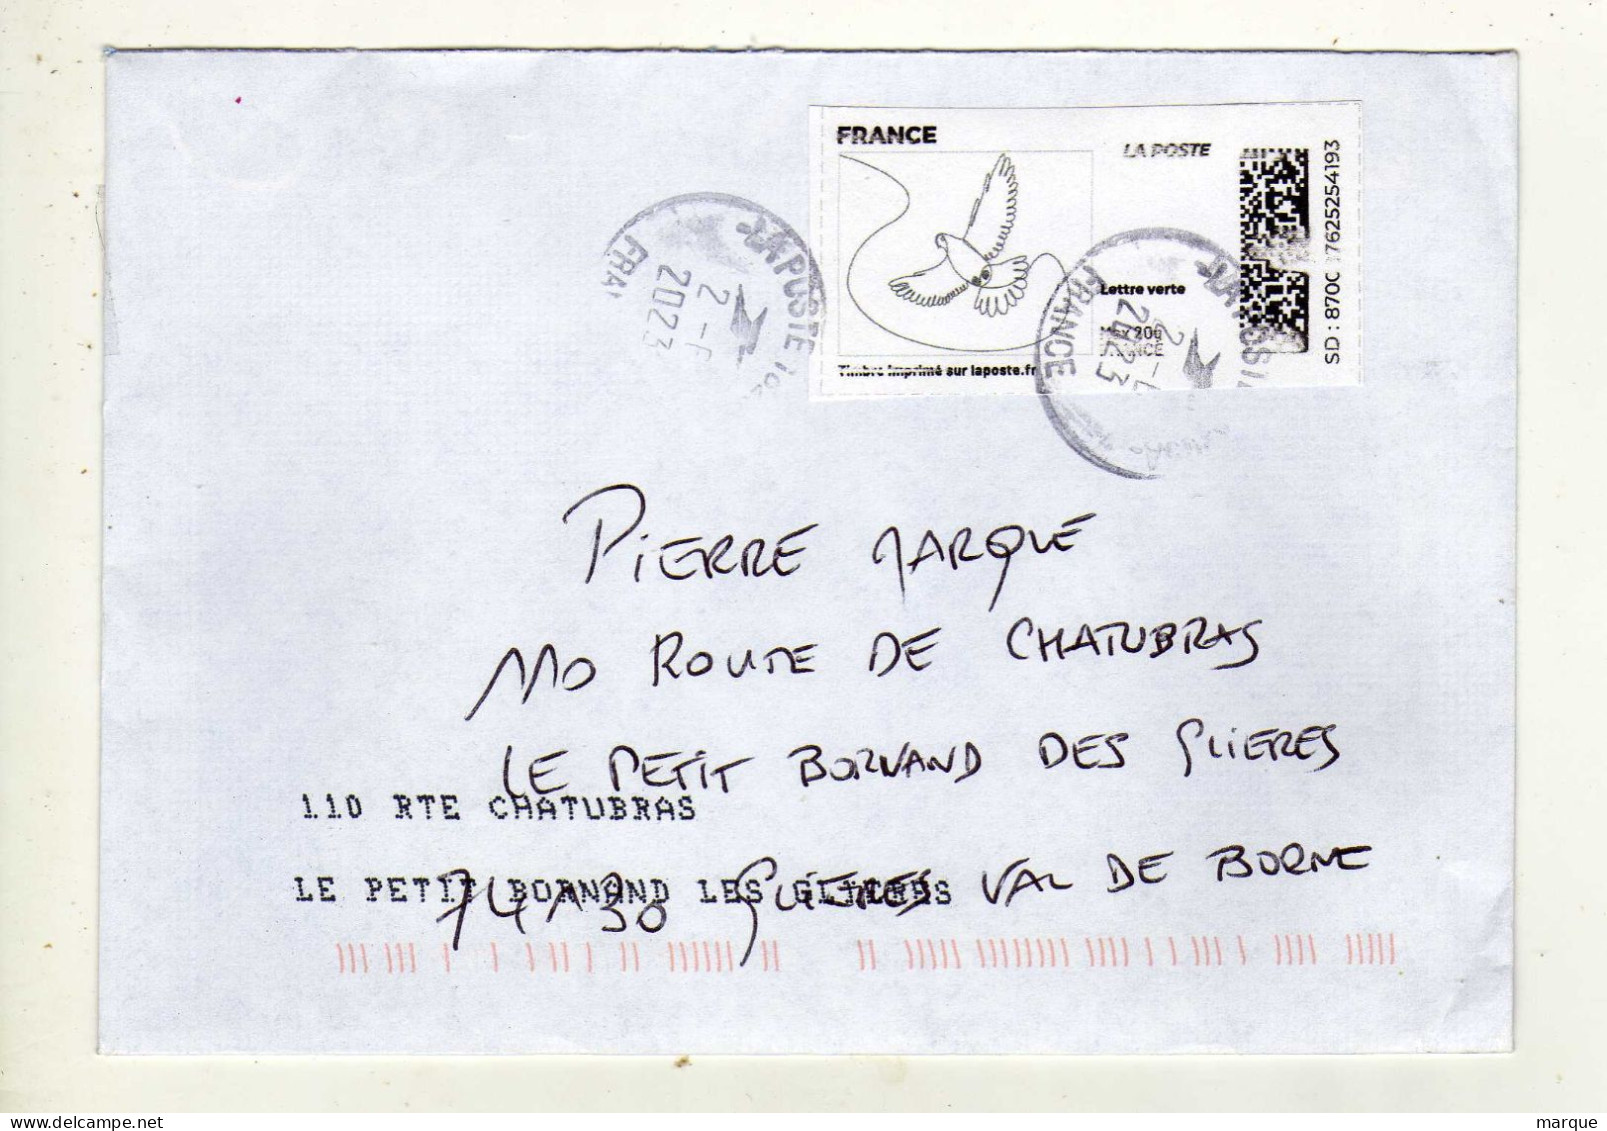 FRANCE
LA POSTE
Lettre verte
Max 20g
FRANCE
Timbre imprimé sur laposte.fr
SD : 870C 7625254193
LA POSTE
2
2023
FRA
LA POSTE
2
2023
FRANCE
PIERRE MARQUE
110 ROUTE DE CHATUBRAS
LE PETIT BORNAND DES GLIERES
110 RTE CHATUBRAS
74130 GLIERES VAL DE BORNE
LE PETIT BORNAND LES GLIERES
marque